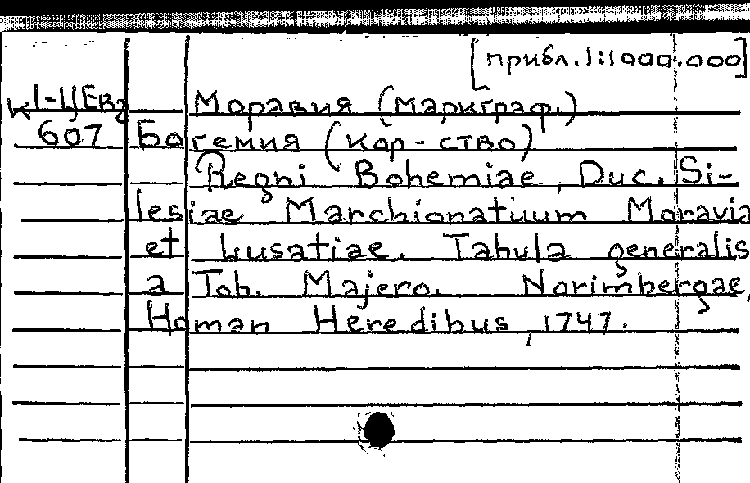 [прибл. 1:1000.000]
К1-ЦЕв2 Моравия (маркграф.)
607 Богемия (кор-ство)
Regni Bohemiae, Duc. Si-
lesiae Marchionatuum Moravia
et Lusatiae. Tabula generalis
a Tob. Majero. Norimbergae,
Homan Heredibus, 1747.